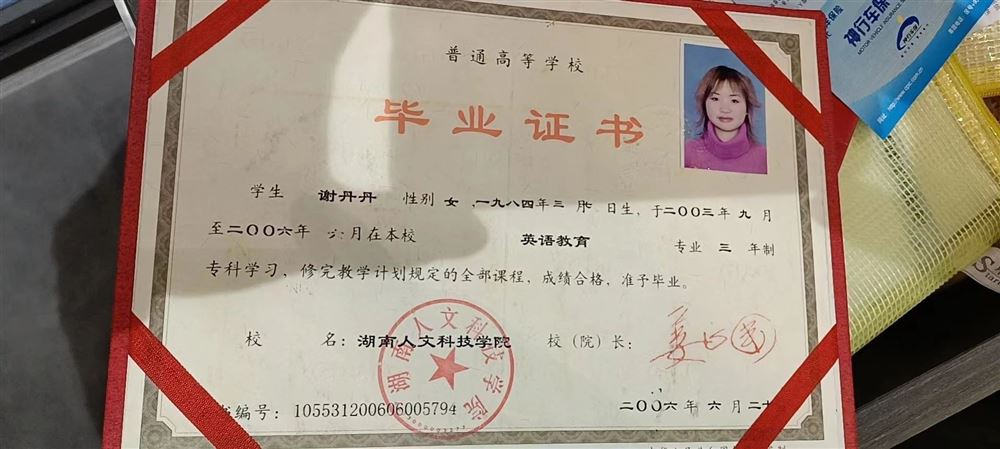 普通高等学校
毕业证书
学生 谢丹丹 性别 女 ,一九八四年三月 日生,于二〇〇三年九月
至二〇〇六年 六月在本校 英语教育 专业 三 年制
专科学习,修完教学计划规定的全部课程,成绩合格,准予毕业。
校 名:湖南人文科技学院 校(院)长:
湖南人文科技学院
编号:105531200606005794 二〇〇六年六月二
神行车保
MOTOR VEHICLE INSURANCE